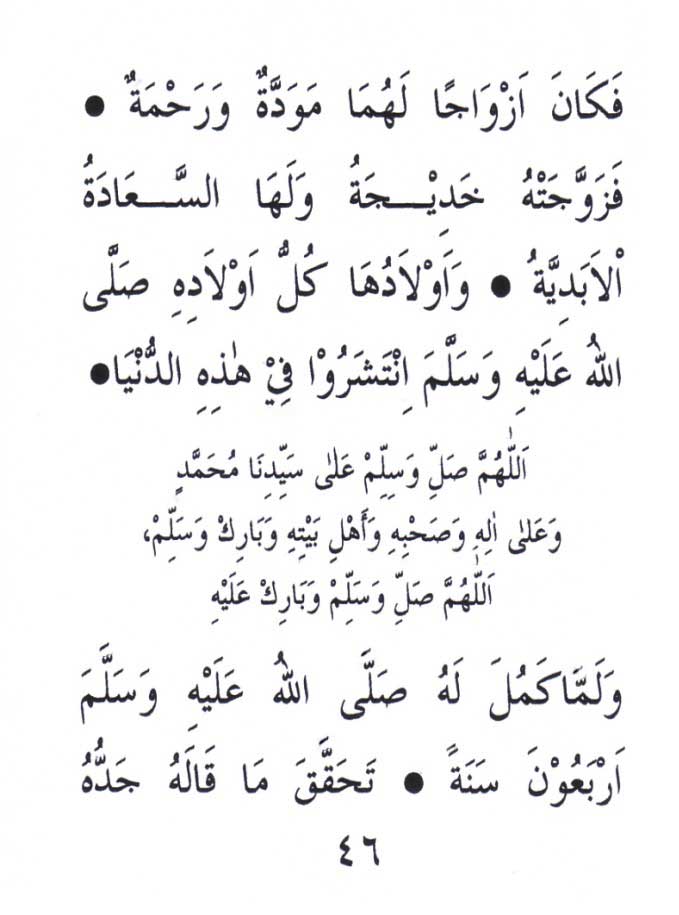 فَكَانَ اَزْوَاجًا لَهُمَا مَوَدَّةٌ وَرَحْمَةٌ ●
فَزَوَّجَتْهُ خَدِيْـــجَةُ وَلَهَا السَّـــعَادَةُ
اْلاَبَدِيَّةُ ● وَاَوْلاَدُهَا كُلُّ اَوْلاَدِهِ صَلَّى
اللهُ عَلَيْهِ وَسَلَّمَ اِنْتَشَرُوْا فِيْ هٰذِهِ الدُّنْيَا●
اَللّٰهُمَّ صَلِّ وَسِلِّمْ عَلٰى سَيِّدِنَا مُحَمَّدٍ
وَعَلٰى اٰلِهِ وَصَحْبِهِ وَأَهْلِ بَيْتِهِ وَبَارِكْ وَسَلِّمْ،
اَللّٰهُمَّ صَلِّ وَسَلِّمْ وَبَارِكْ عَلَيْهِ
وَلَمَّاكَمُلَ لَهُ صَلَّى اللهُ عَلَيْهِ وَسَلَّمَ
اَرْبَعُوْنَ سَنَةً ● تَحَقَّقَ مَا قَالَهُ جَدُّهُ
٤٦